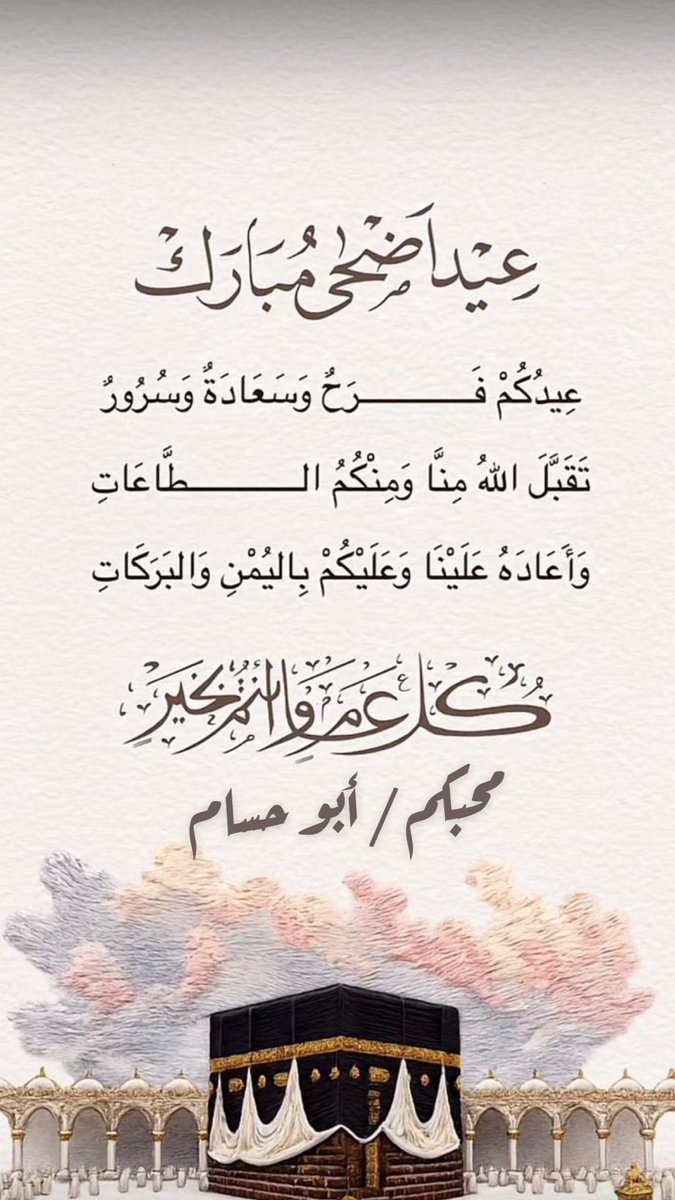 عِيْد اَضْحٰى مُبَارَكْ
عِيدُكُمْ فَـــــرَحٌ وَسَعَادَةٌ وَسُرُورٌ
تَقَبَّلَ اللهُ مِنَّا وَمِنْكُمُ الـــــطَّاعَاتِ
وَأَعَادَهُ عَلَيْنَا وَعَلَيْكُمْ بِاليُمْنِ وَالبَرَكَاتِ
كُل عَام وَانْتُم بِخَيرٍ
محبكم / أبو حسام